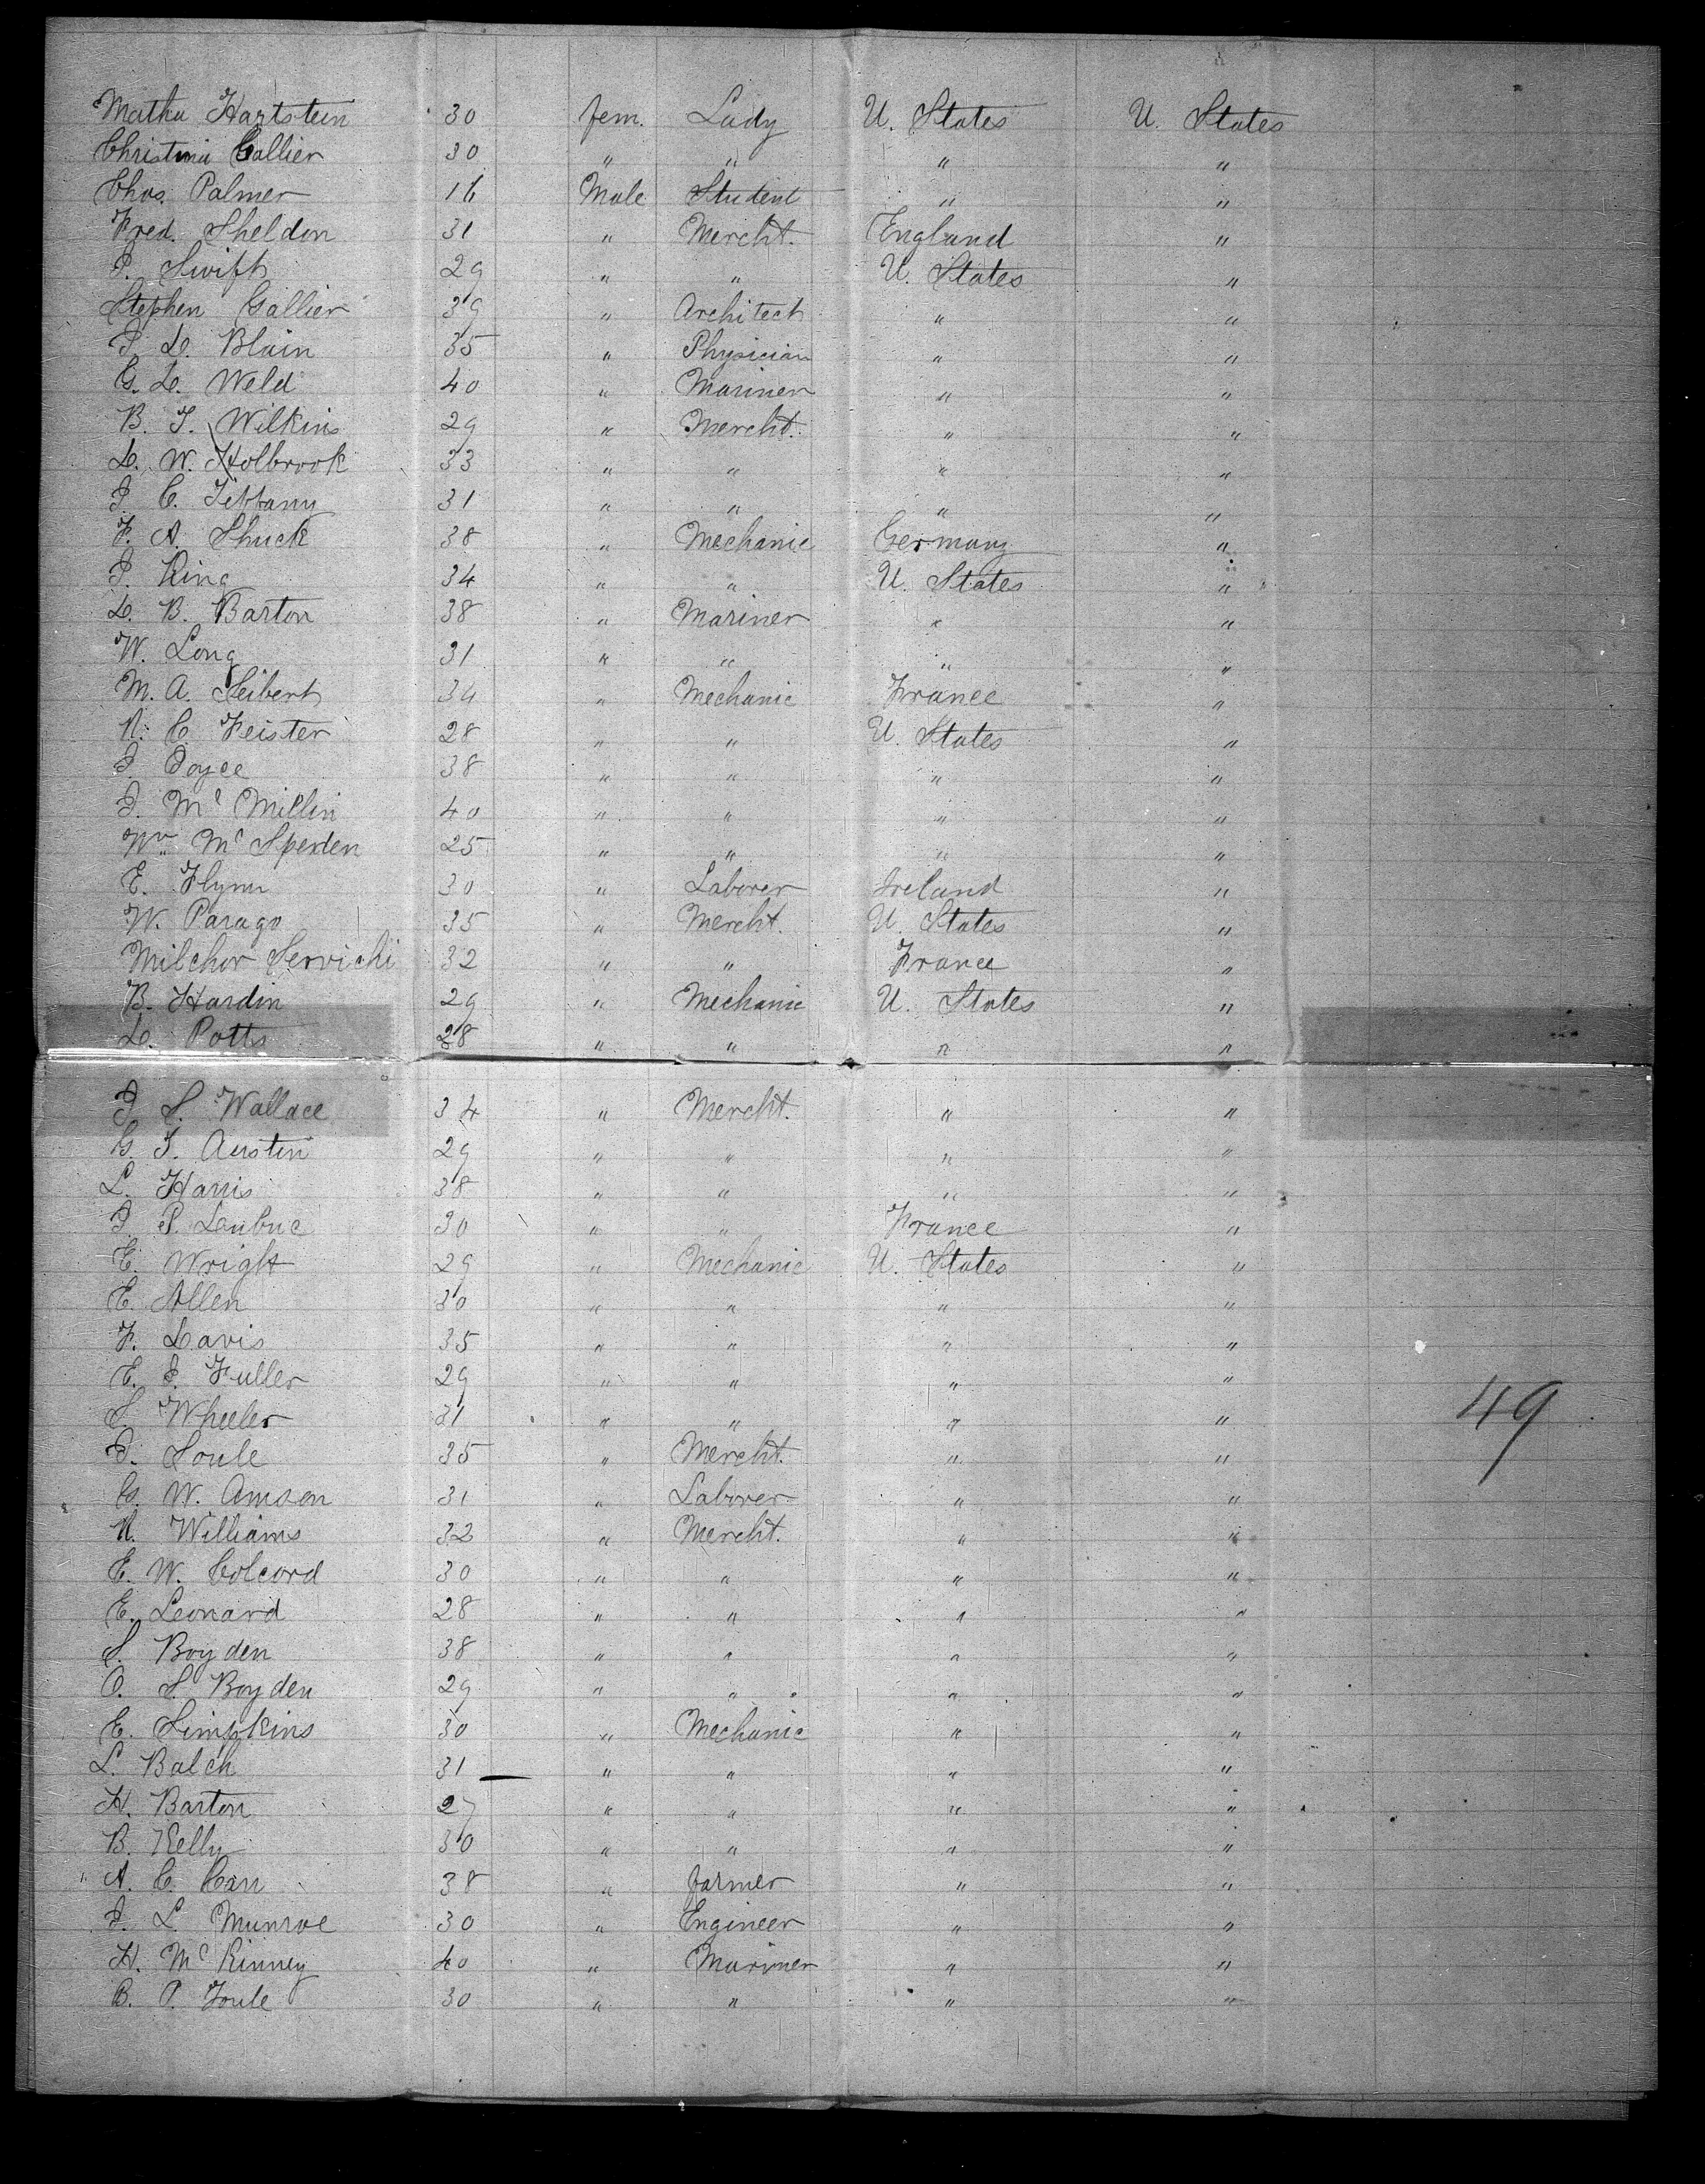 Matha Hartstein 30 fem. Lady U. States U. States
Christina Gallier 30 " " " "
Chas. Palmer 16 Male Student " "
Fred. Sheldon 31 " Mercht. England "
J. Swift 29 " " U. States "
Stephen Gallier 39 " Architect " "
J. D. Blain 35 " Physician " "
G. D. Weld 40 " Mariner " "
B. T. Wilkins 29 " Mercht. " "
D. W. Holbrook 33 " " " "
J. C. Teffany 31 " " " "
F. A. Shuck 38 " Mechanic Germany "
J. King 34 " " U. States "
D. B. Barton 38 " Mariner " "
W. Long 31 " " " "
M. A. Seibert 34 " Mechanic France "
N. C. Feister 28 " " U. States "
J. Joyce 38 " " " "
J. Mc Millin 40 " " " "
Wm Mc Speden 25 " " " "
E. Flynn 30 " Laborer Ireland "
W. Parago 35 " Mercht. U. States "
Milchor Servichi 32 " " France "
B. Hardin 29 " Mechanic U. States "
D. Potts 28 " " " "
J. S. Wallace 34 " Mercht. " "
G. T. Austin 29 " " " "
L. Harris 38 " " " "
J. P. Laubuc 30 " " France "
E. Wright 29 " Mechanic U. States "
E. Allen 30 " " " "
F. Davis 35 " " " "
E. J. Fuller 29 " " " "
S. Wheeler 31 " " " "
49
J. Soule 35 " Mercht. " "
G. W. Amson 31 " Laborer " "
N. Williams 32 " Mercht. " "
E. W. Colcord 30 " " " "
E. Leonard 28 " " " "
S. Boyden 38 " " " "
O. S. Boyden 29 " " " "
E. Simpkins 30 " Mechanic " "
L. Balch 31 " " " "
H. Barton 27 " " " "
B. Kelly 30 " " " "
A. C. Carr 38 " farmer " "
J. L. Munroe 30 " Engineer " "
H. Mc Kinney 40 " Mariner " "
B. P. Toule 30 " " " "